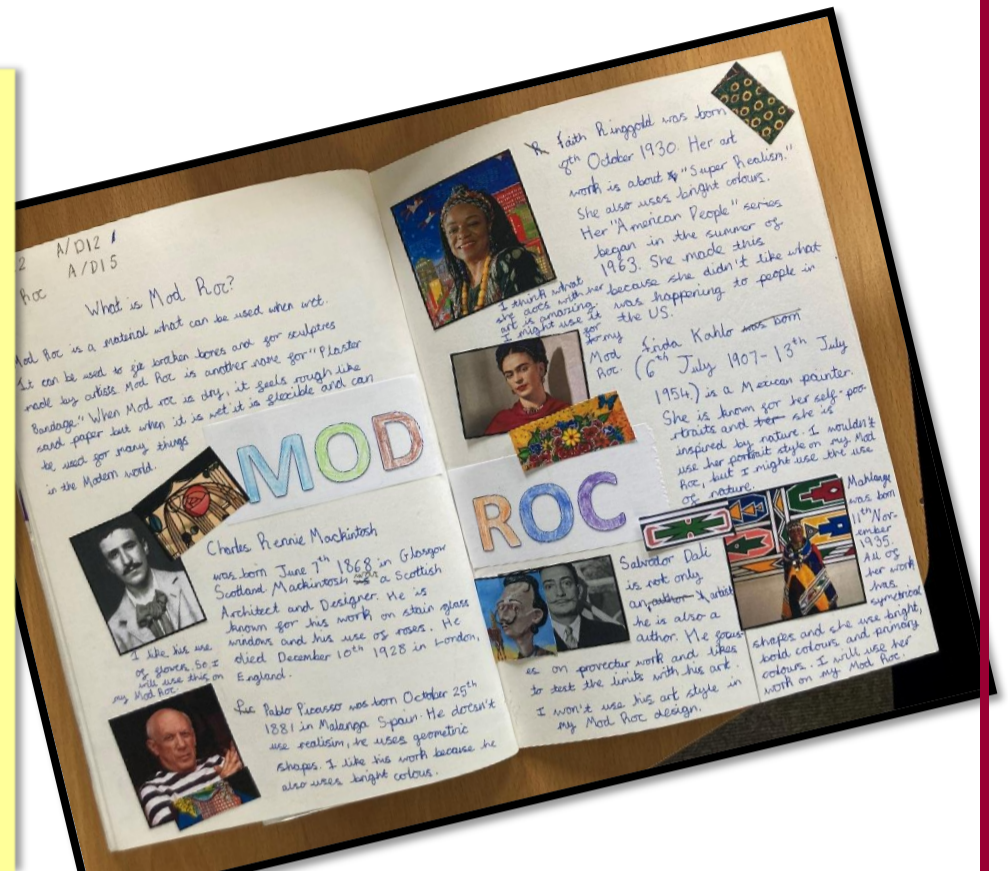 2
A/D12
A/D15
Roc
What is Mod Roc?
Mod Roc is a material what can be used when wet.
It can be used to fix broken bones and for sculptres
made by artists. Mod Roc is another name for "Plaster
Bandage." When Mod roc is dry, it feels rough like
sand paper but when it is wet it is flexible and can
be used for many things
in the Modern world.
MOD
Charles Rennie Mackintosh
was born June 7th 1868 in Glasgow
Scotland Mackintosh a Scottish
Architect and Designer. He is
known for his work on stain glass
windows and his use of roses. He
died December 10th 1928 in London,
England.
I like his use
of flowers. So I
will use this on
my Mod Roc.
Pablo Picasso was born October 25th
1881 in Malanga Spain. He doesn't
use realisim, he uses geometric
shapes. I like his work because he
also uses bright colous.
R Faith Ringgold was born
8th October 1930. Her art
work is about "Super Realism."
She also uses bright colours.
Her "American People" series
began in the summer of
1963. She made this
because she didn't like what
was happening to people in
the US.
I think what
she does with her
art is amazing.
I might use it
for my
Mod
Roc.
Frida Kahlo was born
(6th July 1907-13th July
1954.) is a Mexican painter.
She is known for her self-poo
rtraits and she is
inspired by nature. I wouldn't
use her portrait style on my Mod
Roc, but I might use the use
of nature.
ROC
Salvador Dali
is not only
an author artist
he is also a
author. He focus-
es on provectur work and likes
to test the limits with his art.
I won't use his art style in
my Mod Roc design.
Mahlangu
was born
11th Nov-
ember
1935.
All of
her work
has
symetrical
shapes and she use bright,
bold colours and primary
colours. I will use her
work on my Mod Roc.